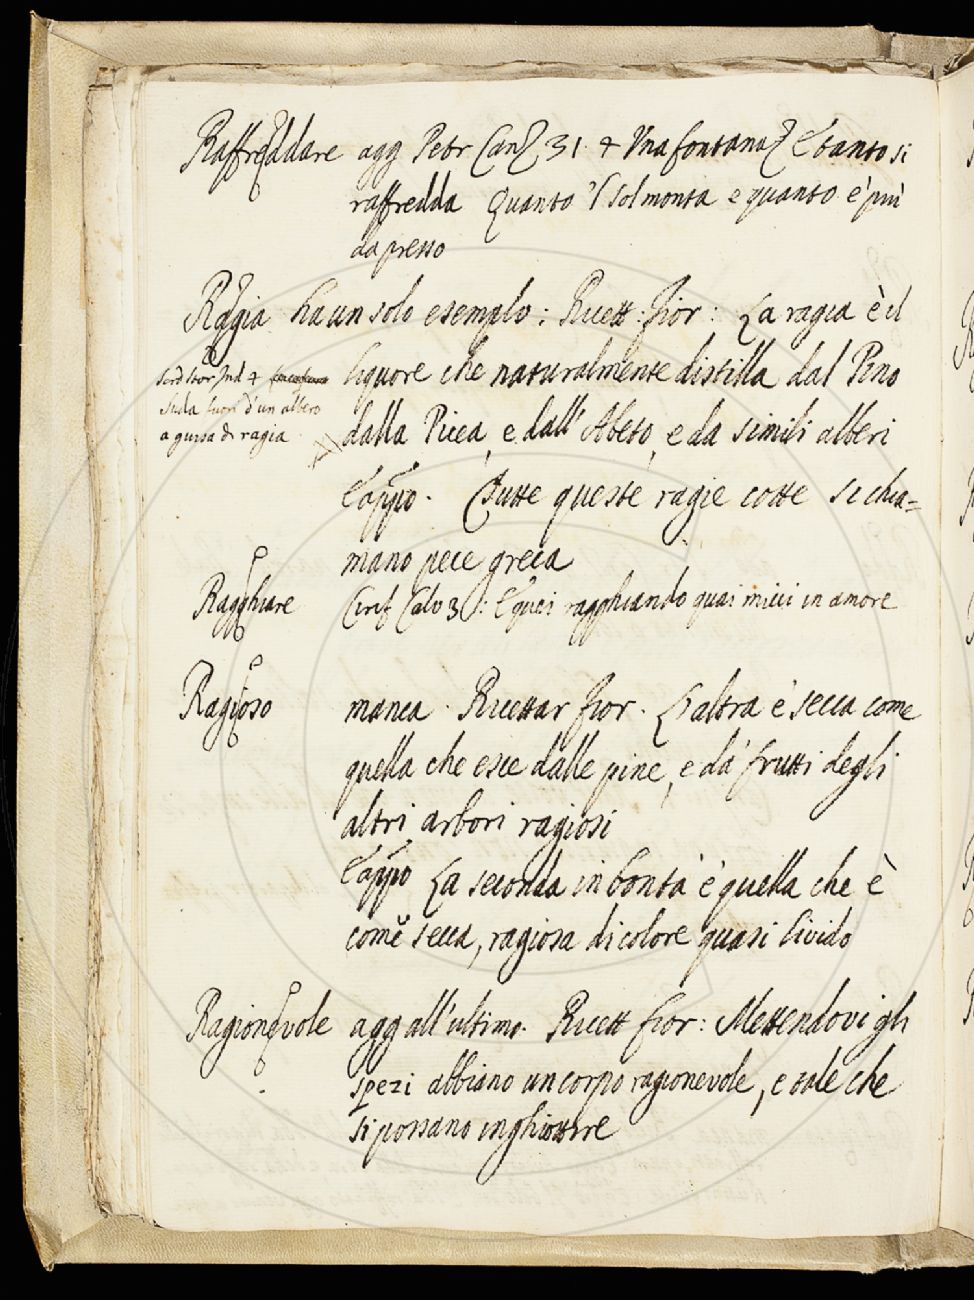 Raffreddare agg Petr Canz 31. 4 Una fontana E tanto si
raffredda Quanto 'l sol monta e quanto è piu
da presso
Ragia ha un solo esempio: Ricett: fior: La ragia è il
liquore che naturalmente distilla dal Pino
Serd Stor Ind 4
Suda fuori d'un albero
a guisa di ragia
dalla Picea, e dall'Abeto, e da simili alberi
E appo. Tutte queste ragie cotte si chia=
mano pece greca
Ragghiare Ciriff Calv 3: E quei ragghiando quai mici in amore
Ragioso manca. Ricettar fior. L'altra è secca come
quella che esce dalle pine, e da' frutti degli
altri arbori ragiosi
E appo La seconda in bontà è quella che è
come secca, ragiosa di colore quasi livido
Ragionevole agg all'ultimo. Ricett fior: Mettendovi gli
spezi abbiano un corpo ragionevole, e tale che
si possano inghiottire